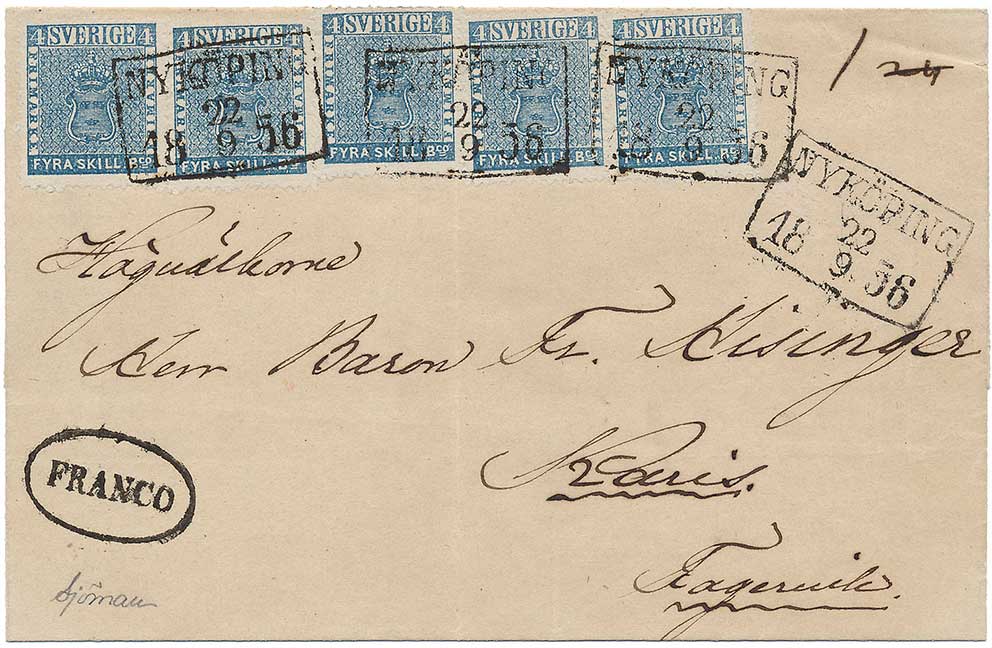 4 SVERIGE 4 4 SVERIGE 4 4 SVERIGE 4 4 SVERIGE 4 4 SVERIGE 4
FRIMÄRKE
FYRA SKILL. Bco FYRA SKILL. Bco FYRA SKILL. Bco FYRA SKILL. Bco FYRA SKILL. Bco
NYKÖPING
22
18 9 56
NYKÖPING
22
18 9 56
NYKÖPING
22
18 9 56
/ 24
NYKÖPING
22
18 9 56
Högvälborne
Herr Baron Fr. Hisinger
Karis.
Fagervik.
FRANCO
Sjöman